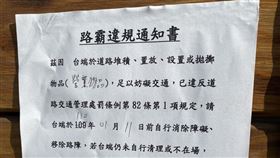 路霸違規通知書
茲因　台端於道路堆積、置放、設置或拋擲
物品(　)，足以妨礙交通，已違反道
路交通管理處罰條例第82條第1項規定，請
台端於109年01月11日前自行消除障礙、
移除路障，若台端仍未自行清理或不在場，